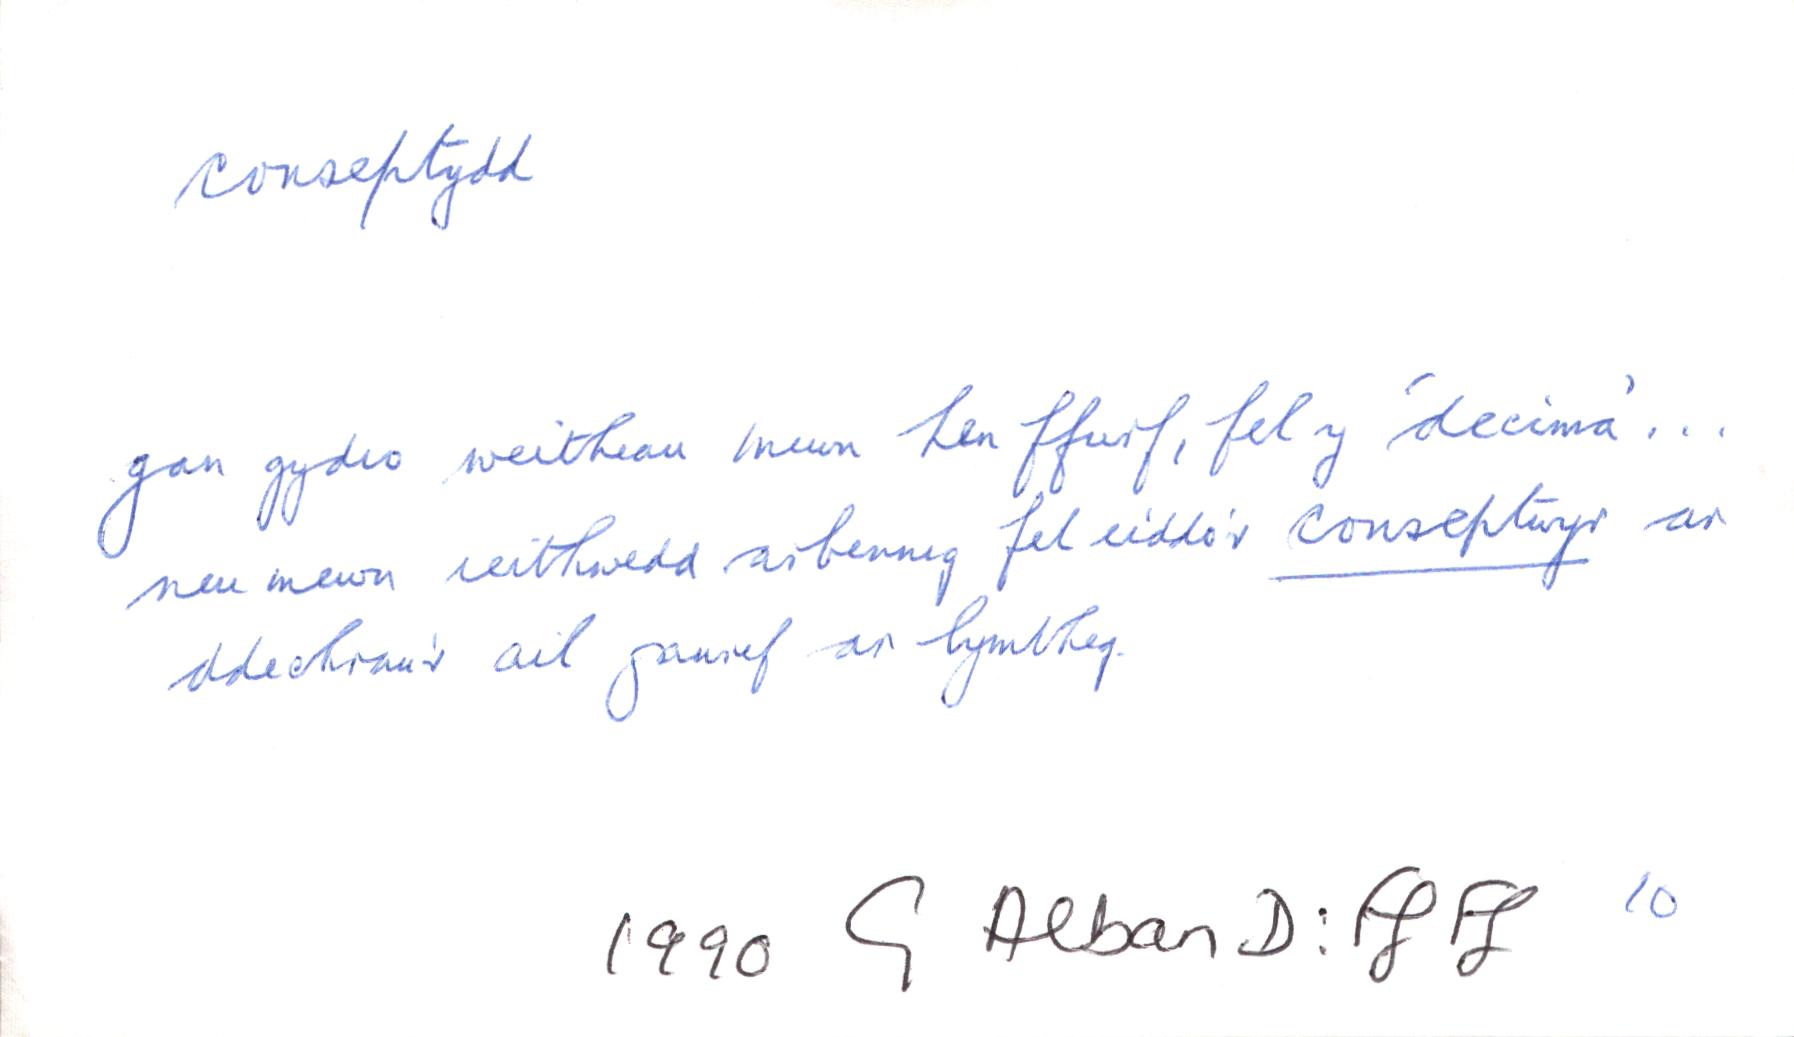 conseptydd
gan gydio weithiau mewn hen ffurf, fel y 'decima'...
neu mewn ieithwedd arbennig fel eiddo'r conseptwyr ar
ddechrau'r ail ganrif ar bymtheg.
1990 G Alban D: Ff Ff 10